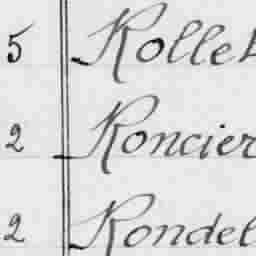 5 Rollet
2 Roncier
2 Rondel